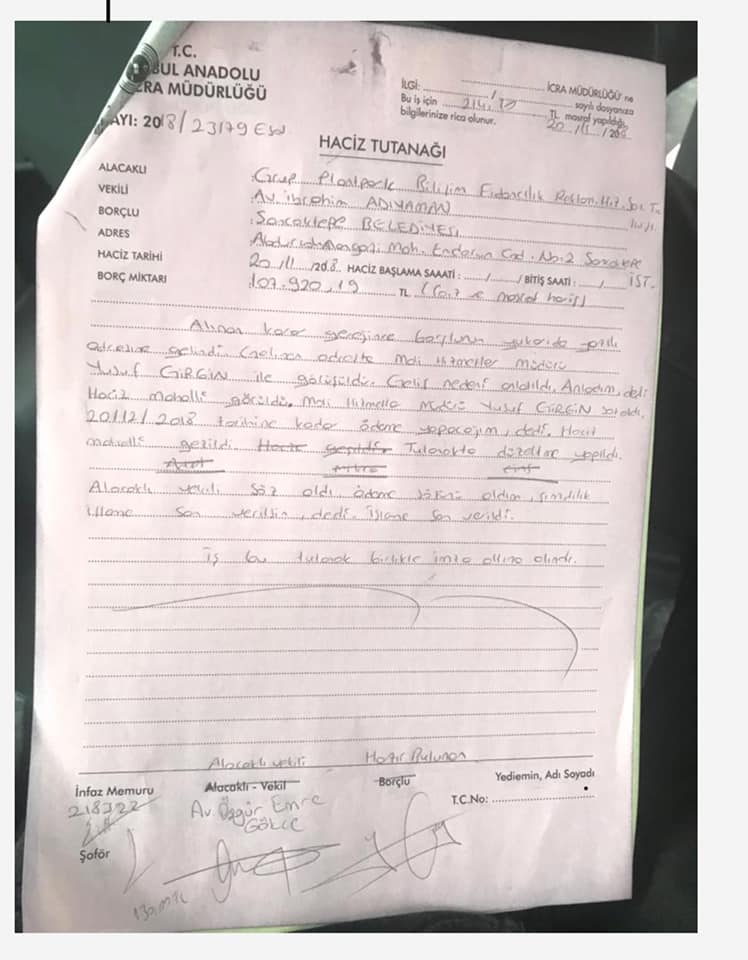 T.C.
BUL ANADOLU
CRA MÜDÜRLÜĞÜ
AYI: 2018/23179 Esas
İLGİ: / İCRA MÜDÜRLÜĞÜ' ne
sayılı dosyanıza
Bu iş için TL masraf yapıldığı
bilgilerinize rica olunur. 20/11/2018
HACİZ TUTANAĞI
ALACAKLI : Grup Bilişim Reklam. Hiz. San. Tic.
VEKİLİ : Av. İbrahim ADIYAMAN
BORÇLU : Sancaktepe BELEDİYESİ
ADRES : Abdurrahmangazi Mah. Enderun Cad. No:2 Sancaktepe İST.
HACİZ TARİHİ 20/11/2018 HACİZ BAŞLAMA SAAATİ : / / BİTİŞ SAATİ : /
BORÇ MİKTARI : 107.920,19 TL (faiz ve masraf hariç)
Alınan karar gereğince borçlunun yukarıda yazılı
adresine gelindi. Gelinen adreste mali hizmetler müdürü
Yusuf GİRGİN ile görüşüldü. Geliş nedeni anlatıldı. Anladım, dedi.
Haciz mahalli görüldü. Mali Hizmetler Müdürü Yusuf GİRGİN söz aldı.
20/12/2018 tarihine kadar ödeme yapacağım, dedi. Haciz
mahalli gezildi. Haciz yapıldı. Tutanakta düzeltme yapıldı.
Alacaklı vekili söz aldı, ödeme sözünü aldım, şimdilik
işleme son verilsin, dedi. İşleme son verildi.
İş bu tutanak birlikte imza altına alındı.
Alacaklı vekili Hazır Bulunan
İnfaz Memuru Alacaklı - Vekil Borçlu Yediemin, Adı Soyadı
218322 Av Özgür Emre
GÖKCE
T.C.No:
Şoför